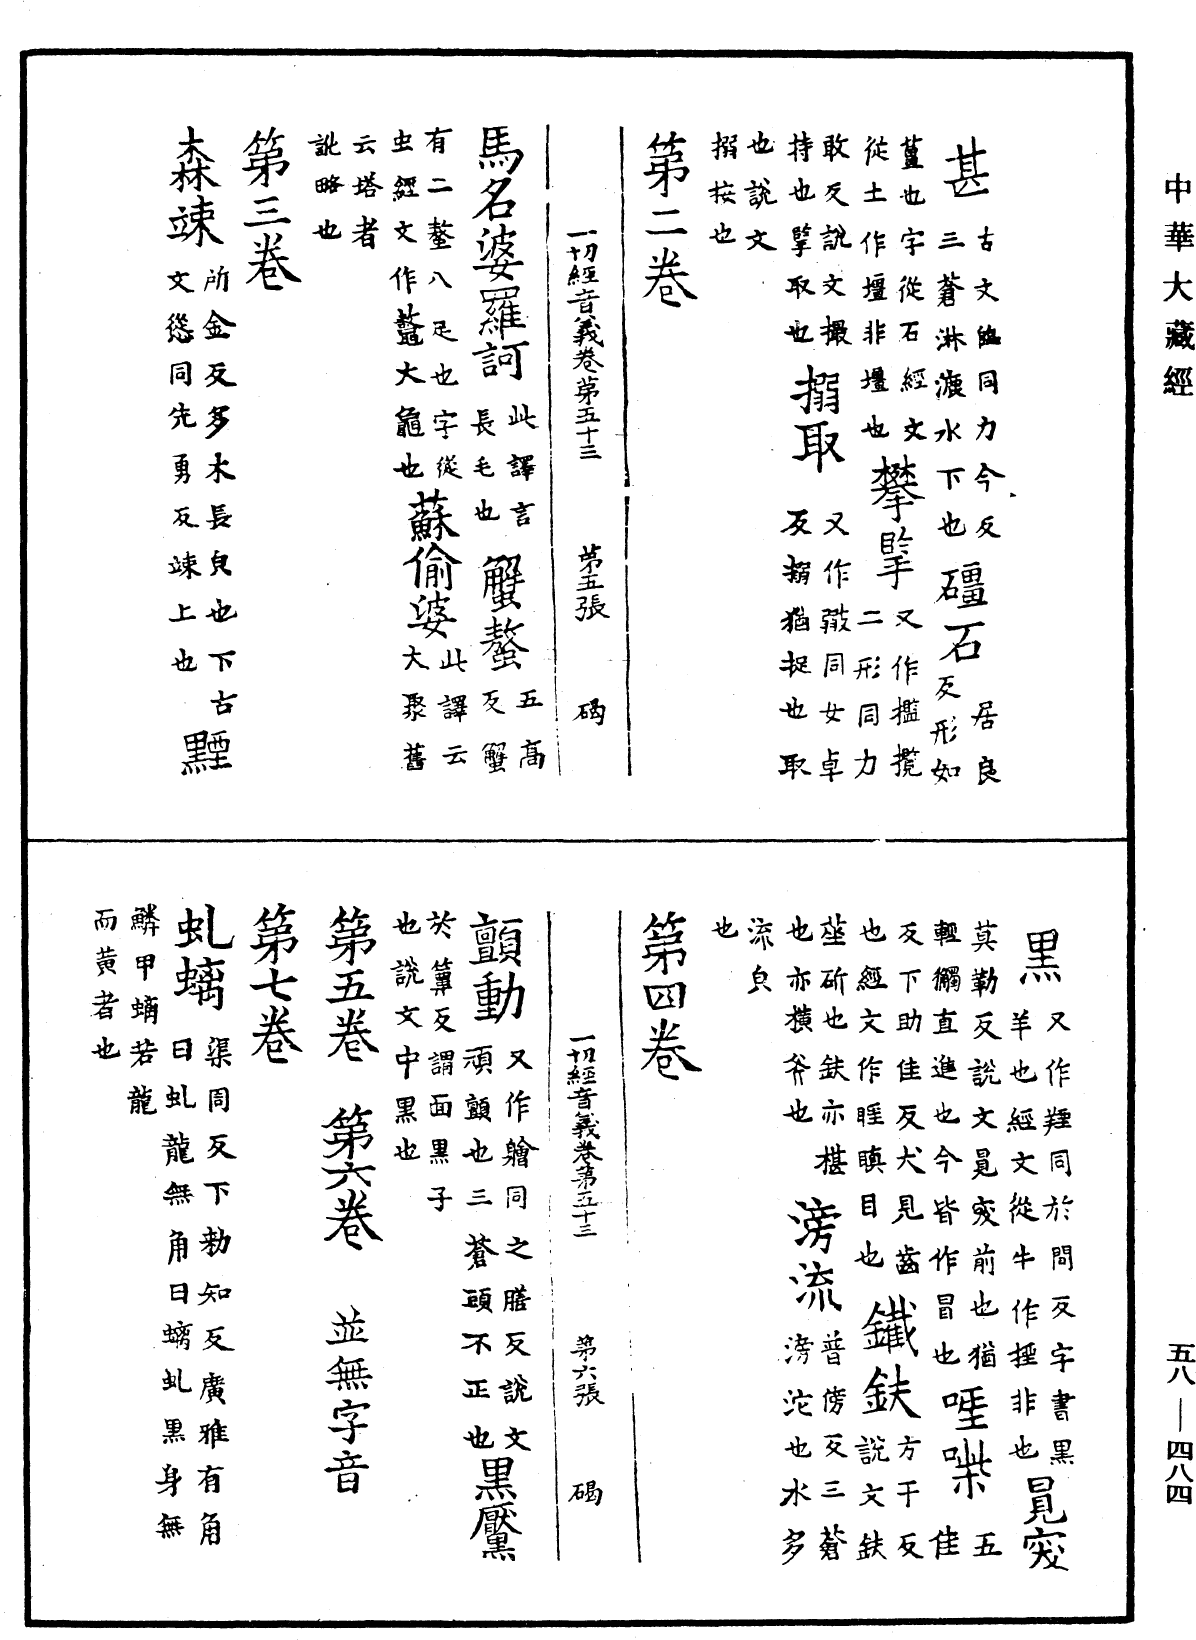 中華大藏經
甚 古文同力今反
三蒼淋漉水下也 礓石 居良
反形如
薑也字從石經文
從土作壇非壃也 攀擥 又作㩜攬
二形同力
敢反說文撮
持也擥取也 搦取 又作同女卓
反搦猶捉也取
也說文
搦按也
第二卷
一切經音義卷第五十三 第五張 碣
馬名婆羅訶 此譯言
長毛也 蟹螯 五高
反蟹
有二螯八足也字從
虫經文作大龜也 蘇偷婆 此譯云
大聚舊
云塔者
訛略也
第三卷
森竦 所金反多木長皃也下古
文慫同先勇反竦上也 黫
黑 又作羥同於問反字書黑
羊也經文從牛作㹵非也 冒突
莫勒反說文冒突前也猶
輕觸直進也今皆作冒也 啀喍 五佳
反下助佳反犬見齒
也經文作睚瞋目也 鐵鈇 方于反
說文鈇
莝斫也鈇亦椹
也亦橫斧也 滂流 普傍反三蒼
滂沱也水多
流皃
也
第四卷
一切經音義卷第五十三 第六張 碣
顫動 又作同之膳反說文
頑顫也三蒼頭不正也 黑黶
於簟反謂面黑子
也說文中黑也
第五卷 第六卷 並無字音
第七卷
虬螭 渠周反下勑知反廣雅有角
曰虬龍無角曰螭虬黑身無
鱗甲螭若龍
而黃者也
五八—四八四